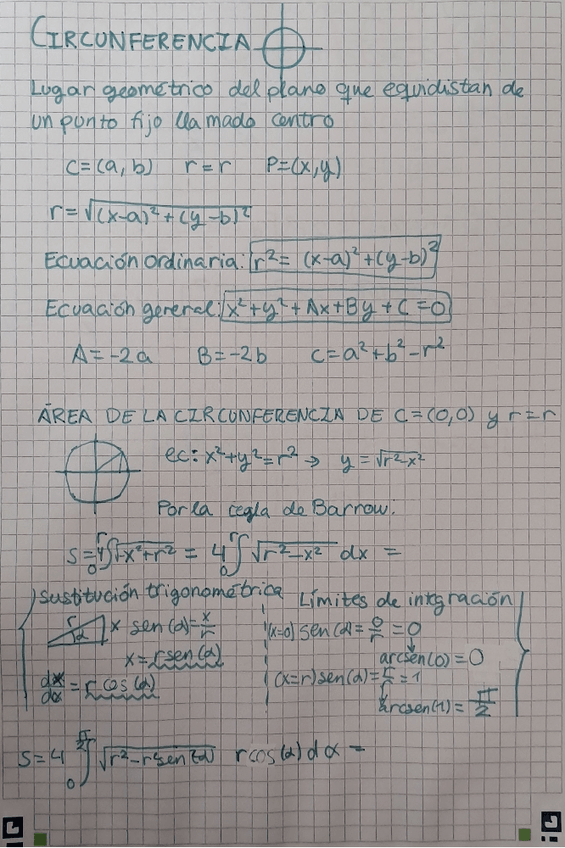 CIRCUNFERENCIA
Lugar geométrico del plano que equidistan de
un punto fijo llamado centro
C=(a, b) r=r P=(x,y)
r=√(x-a)²+(y-b)²
Ecuación ordinaria: r²= (x-a)²+(y-b)²
Ecuación general: x²+y²+Ax+By+C=0
A=-2a B=-2b C=a²+b²-r²
ÁREA DE LA CIRCUNFERENCIA DE C=(0,0) y r=r
ec: x²+y²=r² → y=√r²-x²
Por la regla de Barrow:
S=4∫₀ʳ√-x²+r² = 4∫₀ʳ √r²-x² dx =
sustitución trigonométrica
r α x sen(α)=x/r
x=rsen(α)
dx/dα=r cos(α)
Límites de intgración
(x=0) sen(α=0/r=0
arcsen(0)=0
(x=r)sen(α)=r/r=1
arcsen(1)=π/2
S=4∫₀^π/2 √r²-r²sen²(α) rcos(α)dα=